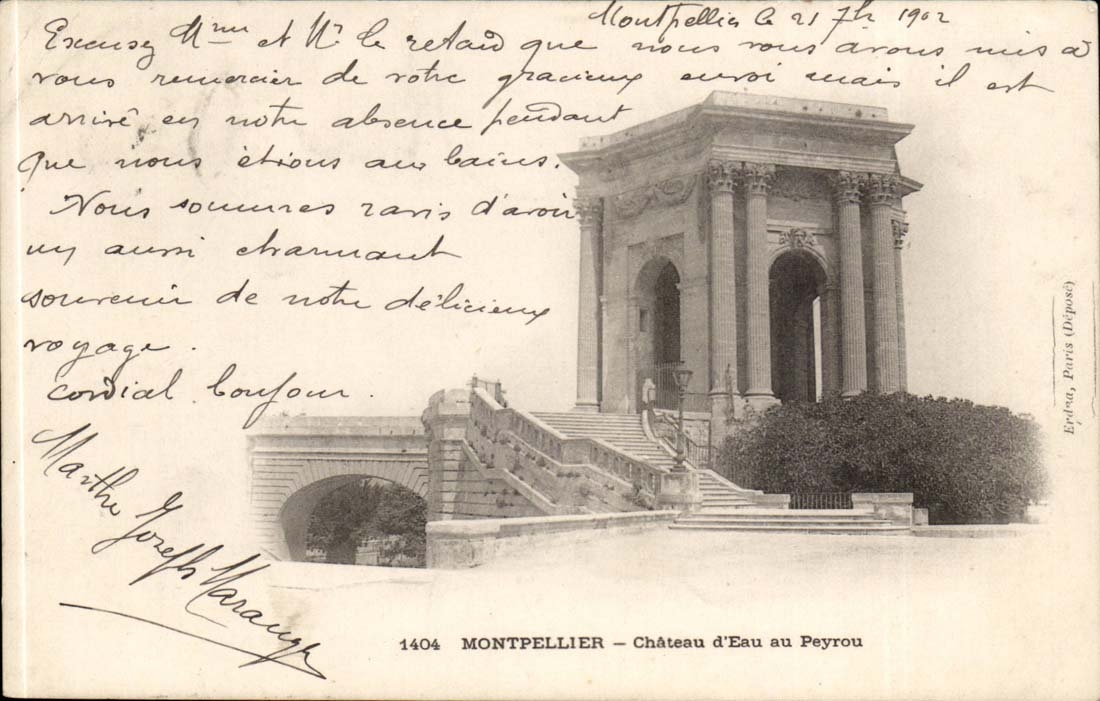 Montpellier le 21 7bre 1902
Excusez Mme et Mr le retard que nous vous avons mis à
vous remercier de votre gracieux envoi mais il est
arrivé en notre absence pendant
que nous étions aux bains.
Nous sommes ravis d'avoir
un aussi charmant
souvenir de notre délicieux
voyage.
Cordial bonjour.
Marthe Joseph
1404 MONTPELLIER – Château d'Eau au Peyrou
Paris (Déposé)